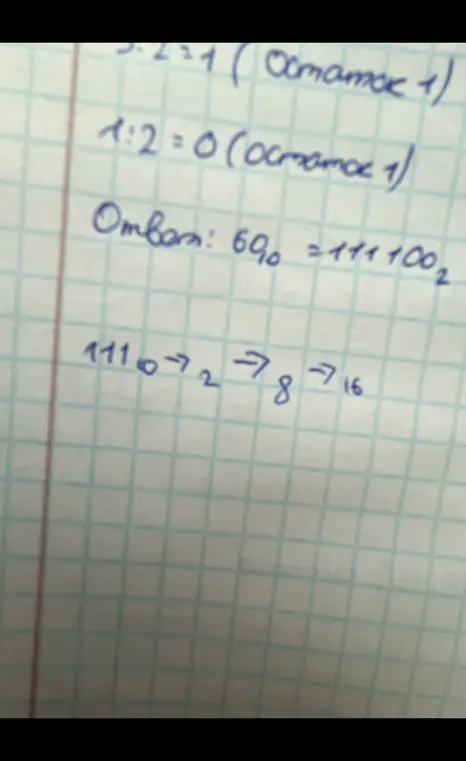 3:2=1 (Остаток 1)
1:2=0 (остаток 1)
Ответ: 60₁₀ =111100₂
111₁₀→₂→₈→₁₆